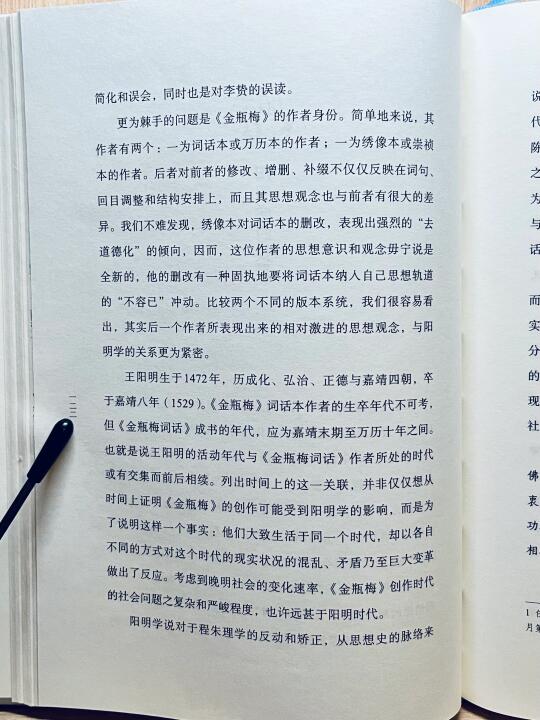 简化和误会，同时也是对李贽的误读。
更为棘手的问题是《金瓶梅》的作者身份。简单地来说，其
作者有两个：一为词话本或万历本的作者；一为绣像本或崇祯
本的作者。后者对前者的修改、增删、补缀不仅仅反映在词句、
回目调整和结构安排上，而且其思想观念也与前者有很大的差
异。我们不难发现，绣像本对词话本的删改，表现出强烈的“去
道德化”的倾向，因而，这位作者的思想意识和观念毋宁说是
全新的，他的删改有一种固执地要将词话本纳入自己思想轨道
的“不容已”冲动。比较两个不同的版本系统，我们很容易看
出，其实后一个作者所表现出来的相对激进的思想观念，与阳
明学的关系更为紧密。
王阳明生于1472年，历成化、弘治、正德与嘉靖四朝，卒
于嘉靖八年（1529）。《金瓶梅》词话本作者的生卒年代不可考，
但《金瓶梅词话》成书的年代，应为嘉靖末期至万历十年之间。
也就是说王阳明的活动年代与《金瓶梅词话》作者所处的时代
或有交集而前后相续。列出时间上的这一关联，并非仅仅想从
时间上证明《金瓶梅》的创作可能受到阳明学的影响，而是为
了说明这样一个事实：他们大致生活于同一个时代，却以各自
不同的方式对这个时代的现实状况的混乱、矛盾乃至巨大变革
做出了反应。考虑到晚明社会的变化速率，《金瓶梅》创作时代
的社会问题之复杂和严峻程度，也许远甚于阳明时代。
阳明学说对于程朱理学的反动和矫正，从思想史的脉络来
说
代
陈
之
为
与
话
而
实
分
的
现
社
佛
衷
功
相
1
月第